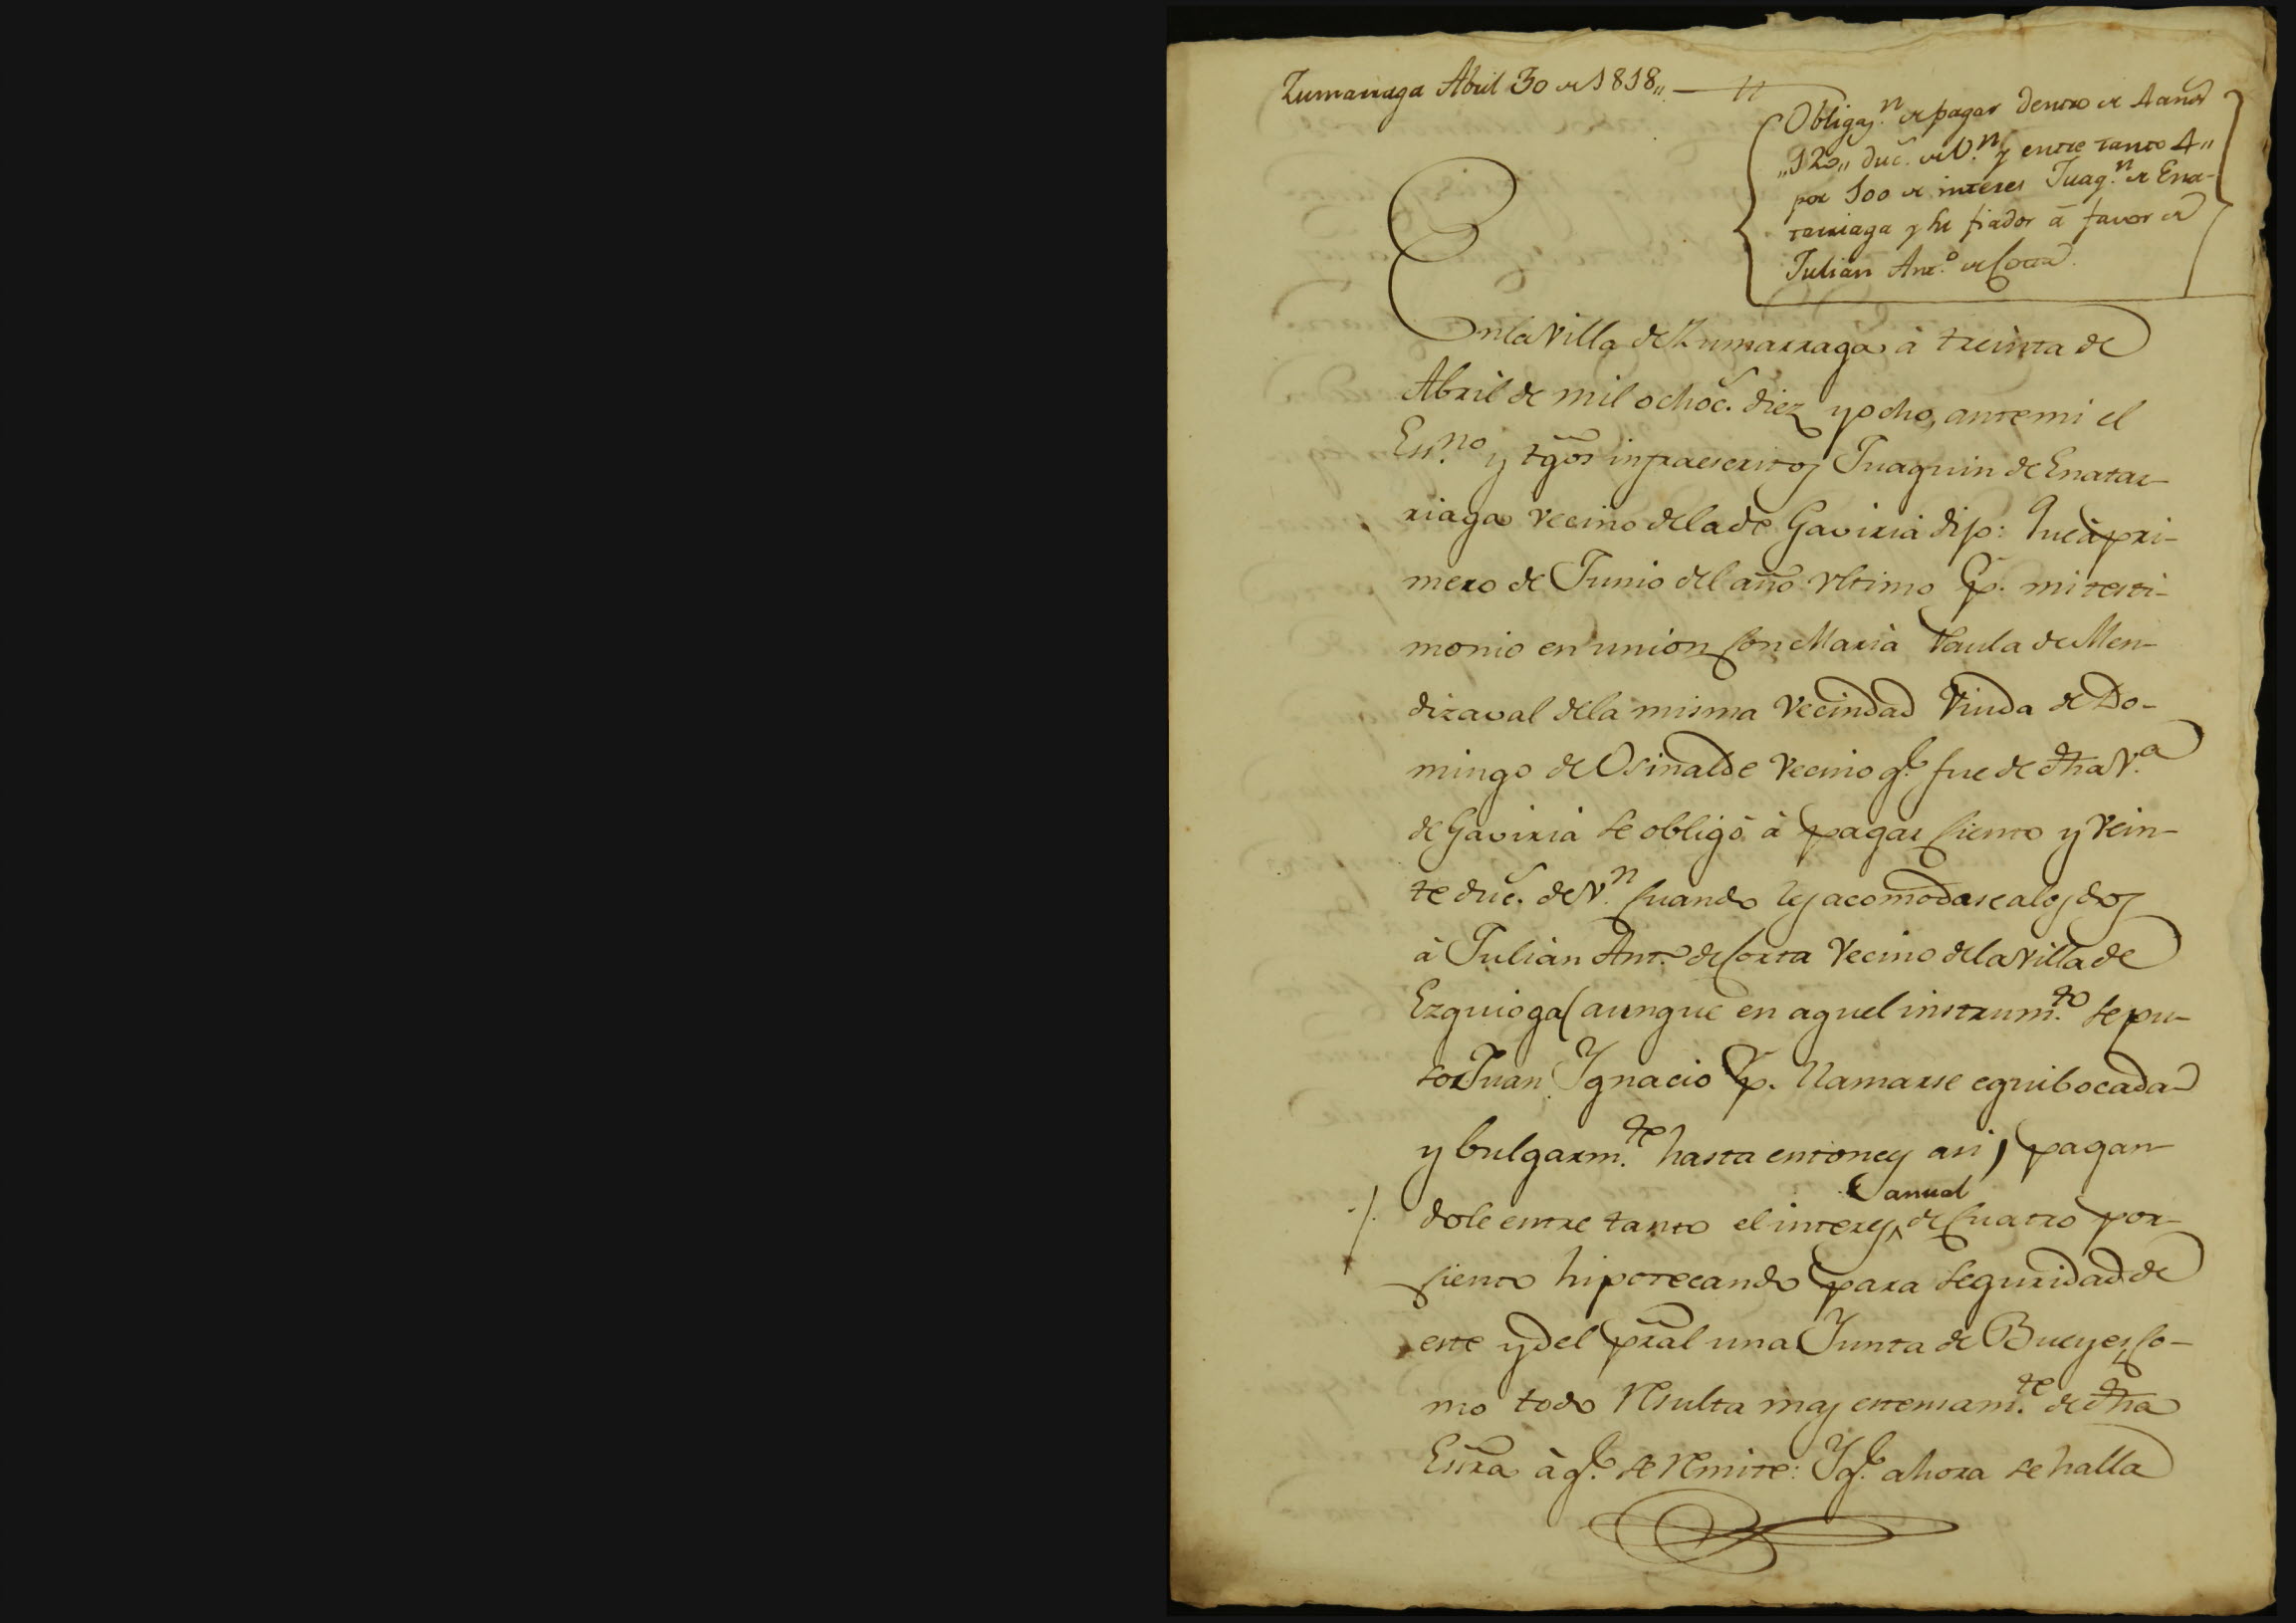 Zumarraga Abril 30 de 1818,,
Obligaz.n de pagar dentro de 4 años
,,120,, duc.s de V.n y entre tanto 4,,
por 100 de interes Juaq.n de Ena-
tarriaga y su fiador à favor de
Julian Ant.o de Corta.
En la Villa de Zumarraga à treinta de
Abril de mil ochoc.s diez y ocho, ante mi el
Ess.no y tgos infraescritos Juaquin de Enatar-
riaga vecino de la de Gaviria dijo: Que à pri-
mero de Junio del año vltimo p.r mi testi-
monio en union con Maria Paula de Men-
dizaval de la misma vecindad Viuda de Do-
mingo de Osinalde vecino q.e fue de dha V.a
de Gaviria se obligò à pagar ciento y vein-
te duc.s de V.n cuando les acomodase a los dos
à Julian Ant.o de Corta vecino de la Villa de
Ezquioga (aunque en aquel instrum.to se pu-
so Juan Ignacio p.r llamarse equibocada
y bulgarm.te hasta entonces asi) pagan-
anual
dole entre tanto el interes de cuatro por
ciento hipotecando para seguridad de
este y del pral una Junta de Bueyes, co-
mo todo resulta mas estensam.te de dha
Essra à q.e se remite: Y q.e ahora se halla